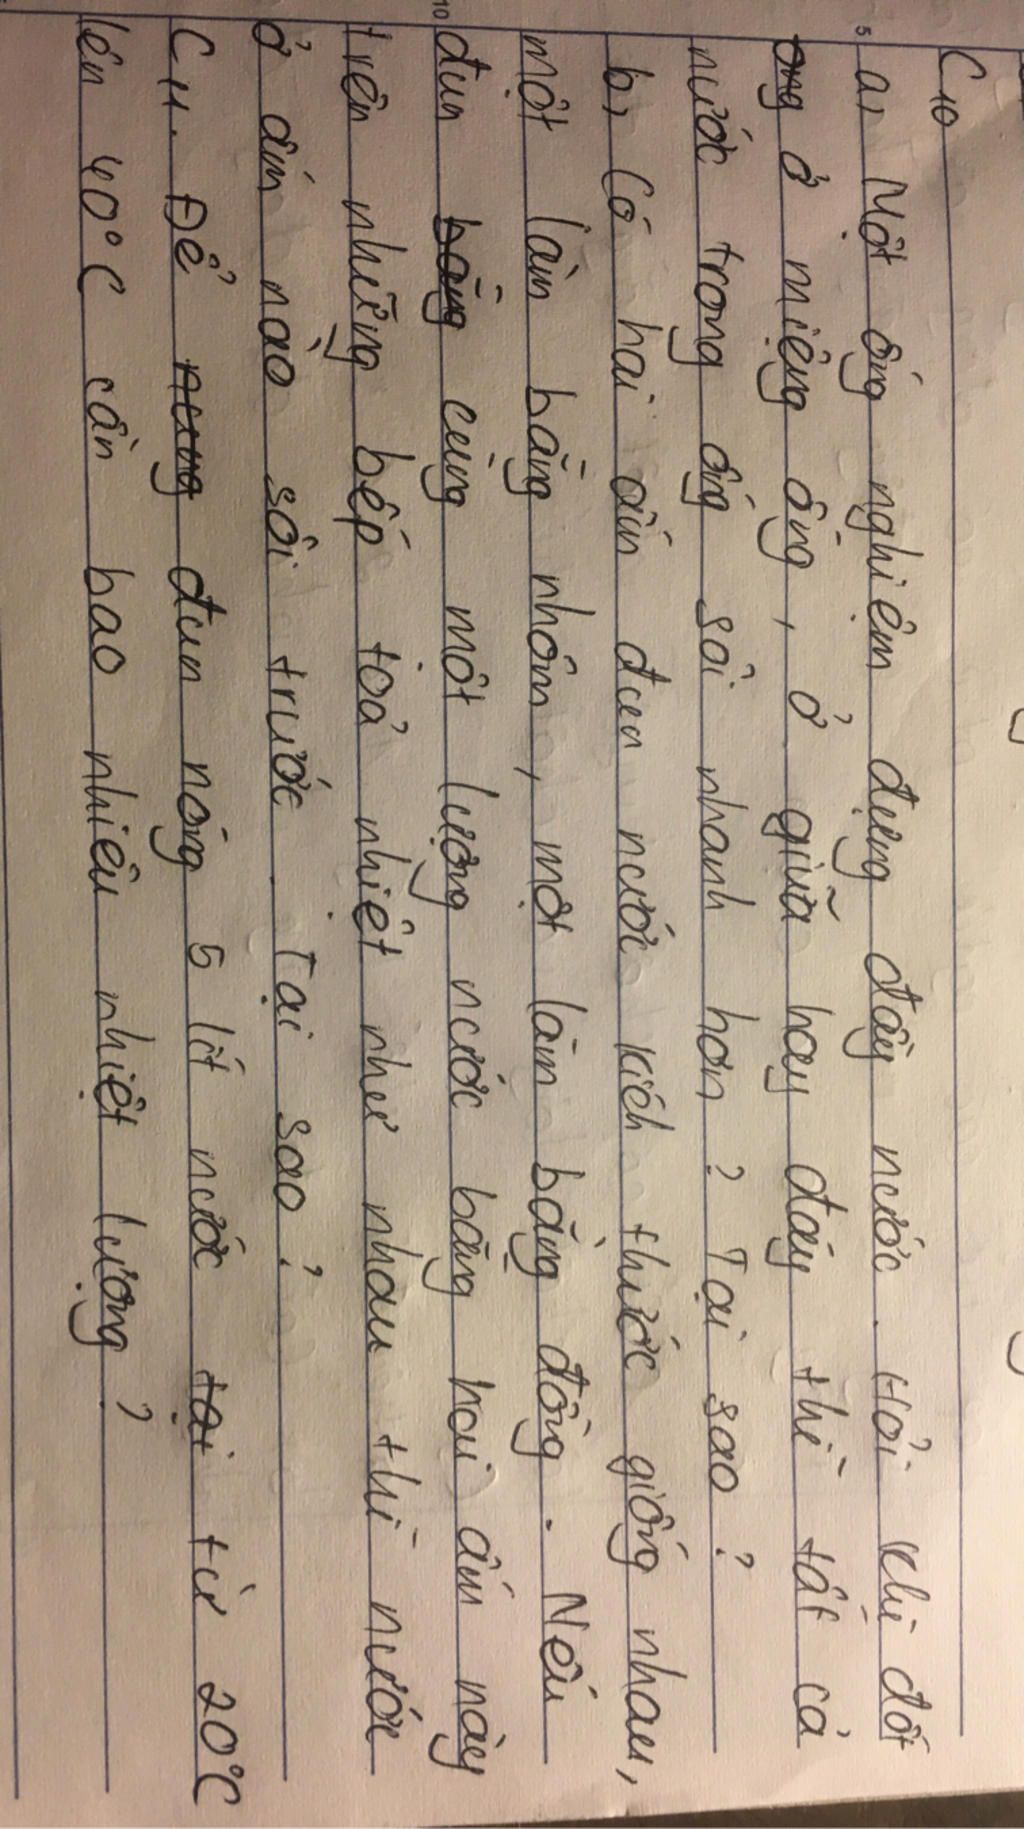 C10
5
a, Một ống nghiệm đựng đầy nước. Hỏi khi đốt
ống ở miệng ống, ở giữa hay đáy thì tất cả
nước trong ống sôi nhanh hơn? Tại sao?
b, Có hai ấm đun nước kích thước giống nhau,
một làm bằng nhôm, một làm bằng đồng. Nếu
10
đun bằng cùng một lượng nước bằng hai ấm này
trên những bếp toả nhiệt như nhau thì nước
ở ấm nào sôi trước. Tại sao?
C11. Để đun nóng 5 lít nước tại từ 20°C
lên 40°C cần bao nhiêu nhiệt lượng?